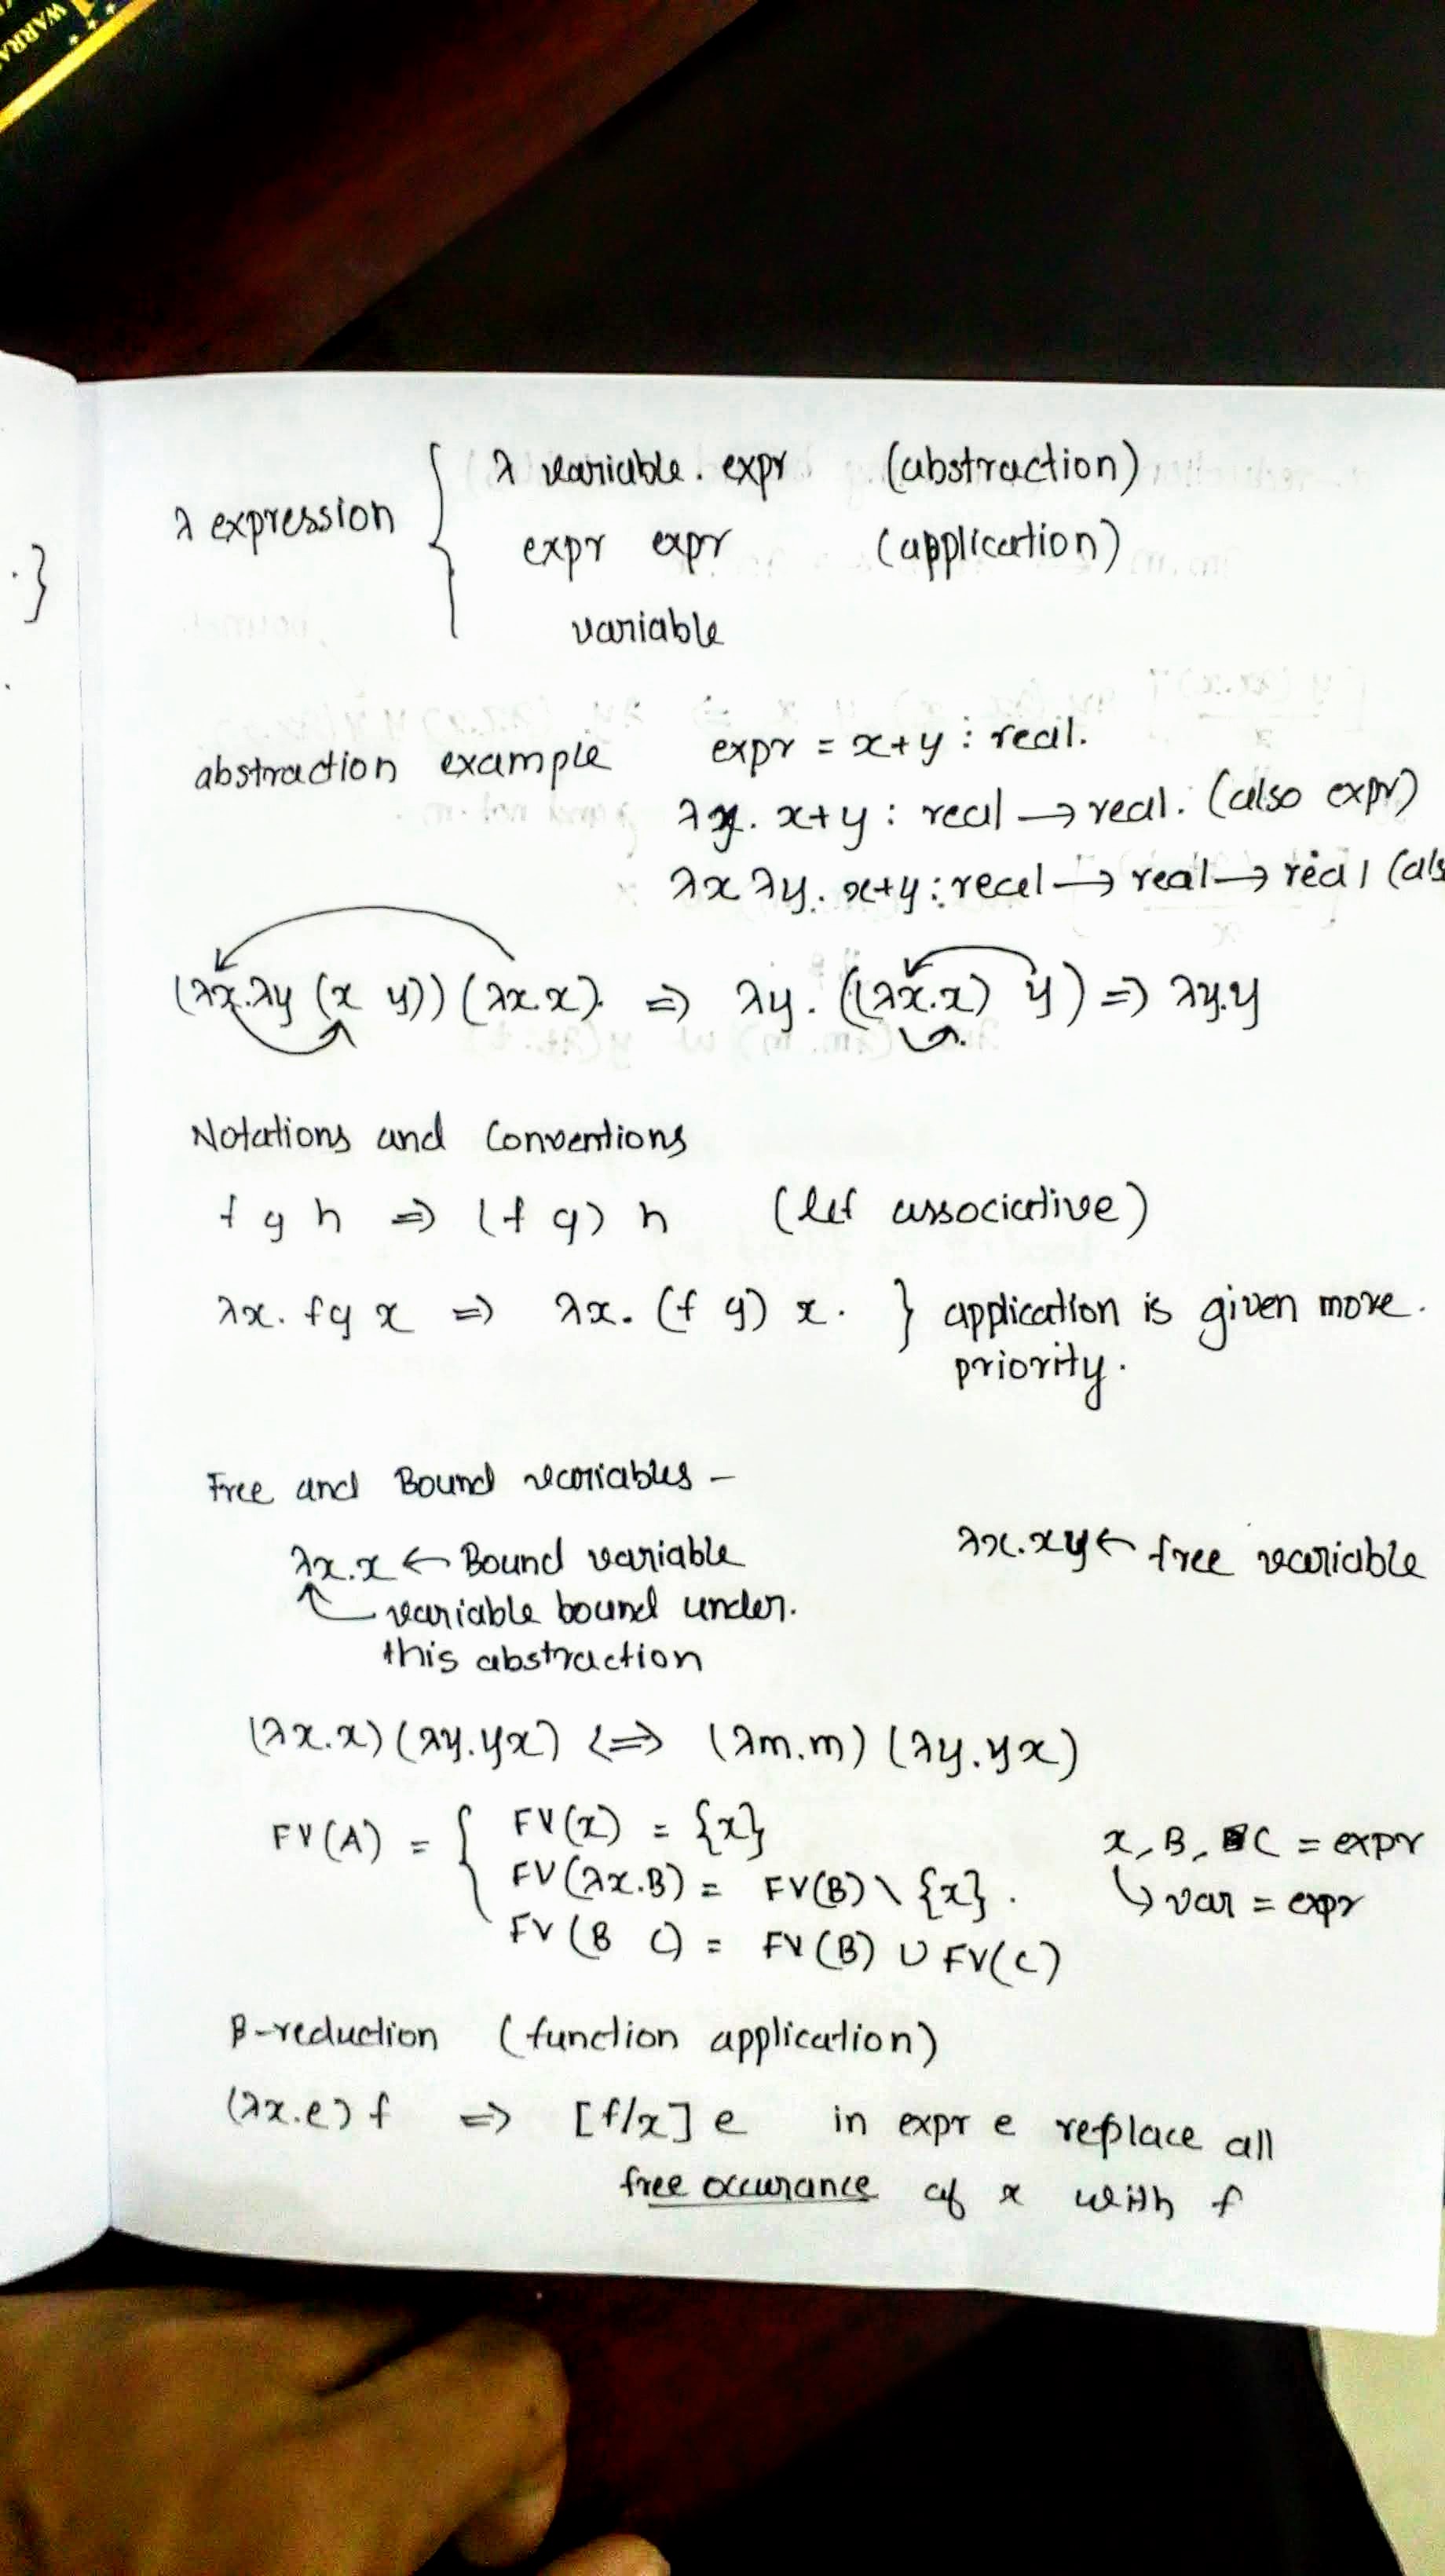 WARRA
.}
λ expression { λ variable. expr (abstraction)
expr expr (application)
variable
abstraction example expr = x+y : real.
λy. x+y : real → real. (also expr)
λx λy. x+y : real → real → real (als
(λx.λy (x y)) (λx.x). ⇒ λy. ((λx.x) y) ⇒ λy.y
Notations and Conventions
f g h ⇒ (f g) h (lef associative)
λx. f g x ⇒ λx. (f g) x. } application is given more.
priority.
Free and Bound variables –
λx.x ← Bound variable
variable bound under.
this abstraction
λx.xy ← free variable
(λx.x) (λy.yx) <⇒ (λm.m) (λy.yx)
FV(A) = { FV(x) = {x}
FV(λx.B) = FV(B) \ {x}.
FV(B C) = FV(B) ∪ FV(C)
x, B, C = expr
↳ var = expr
β-reduction (function application)
(λx.e) f ⇒ [f/x] e in expr e replace all
free occurance of x with f